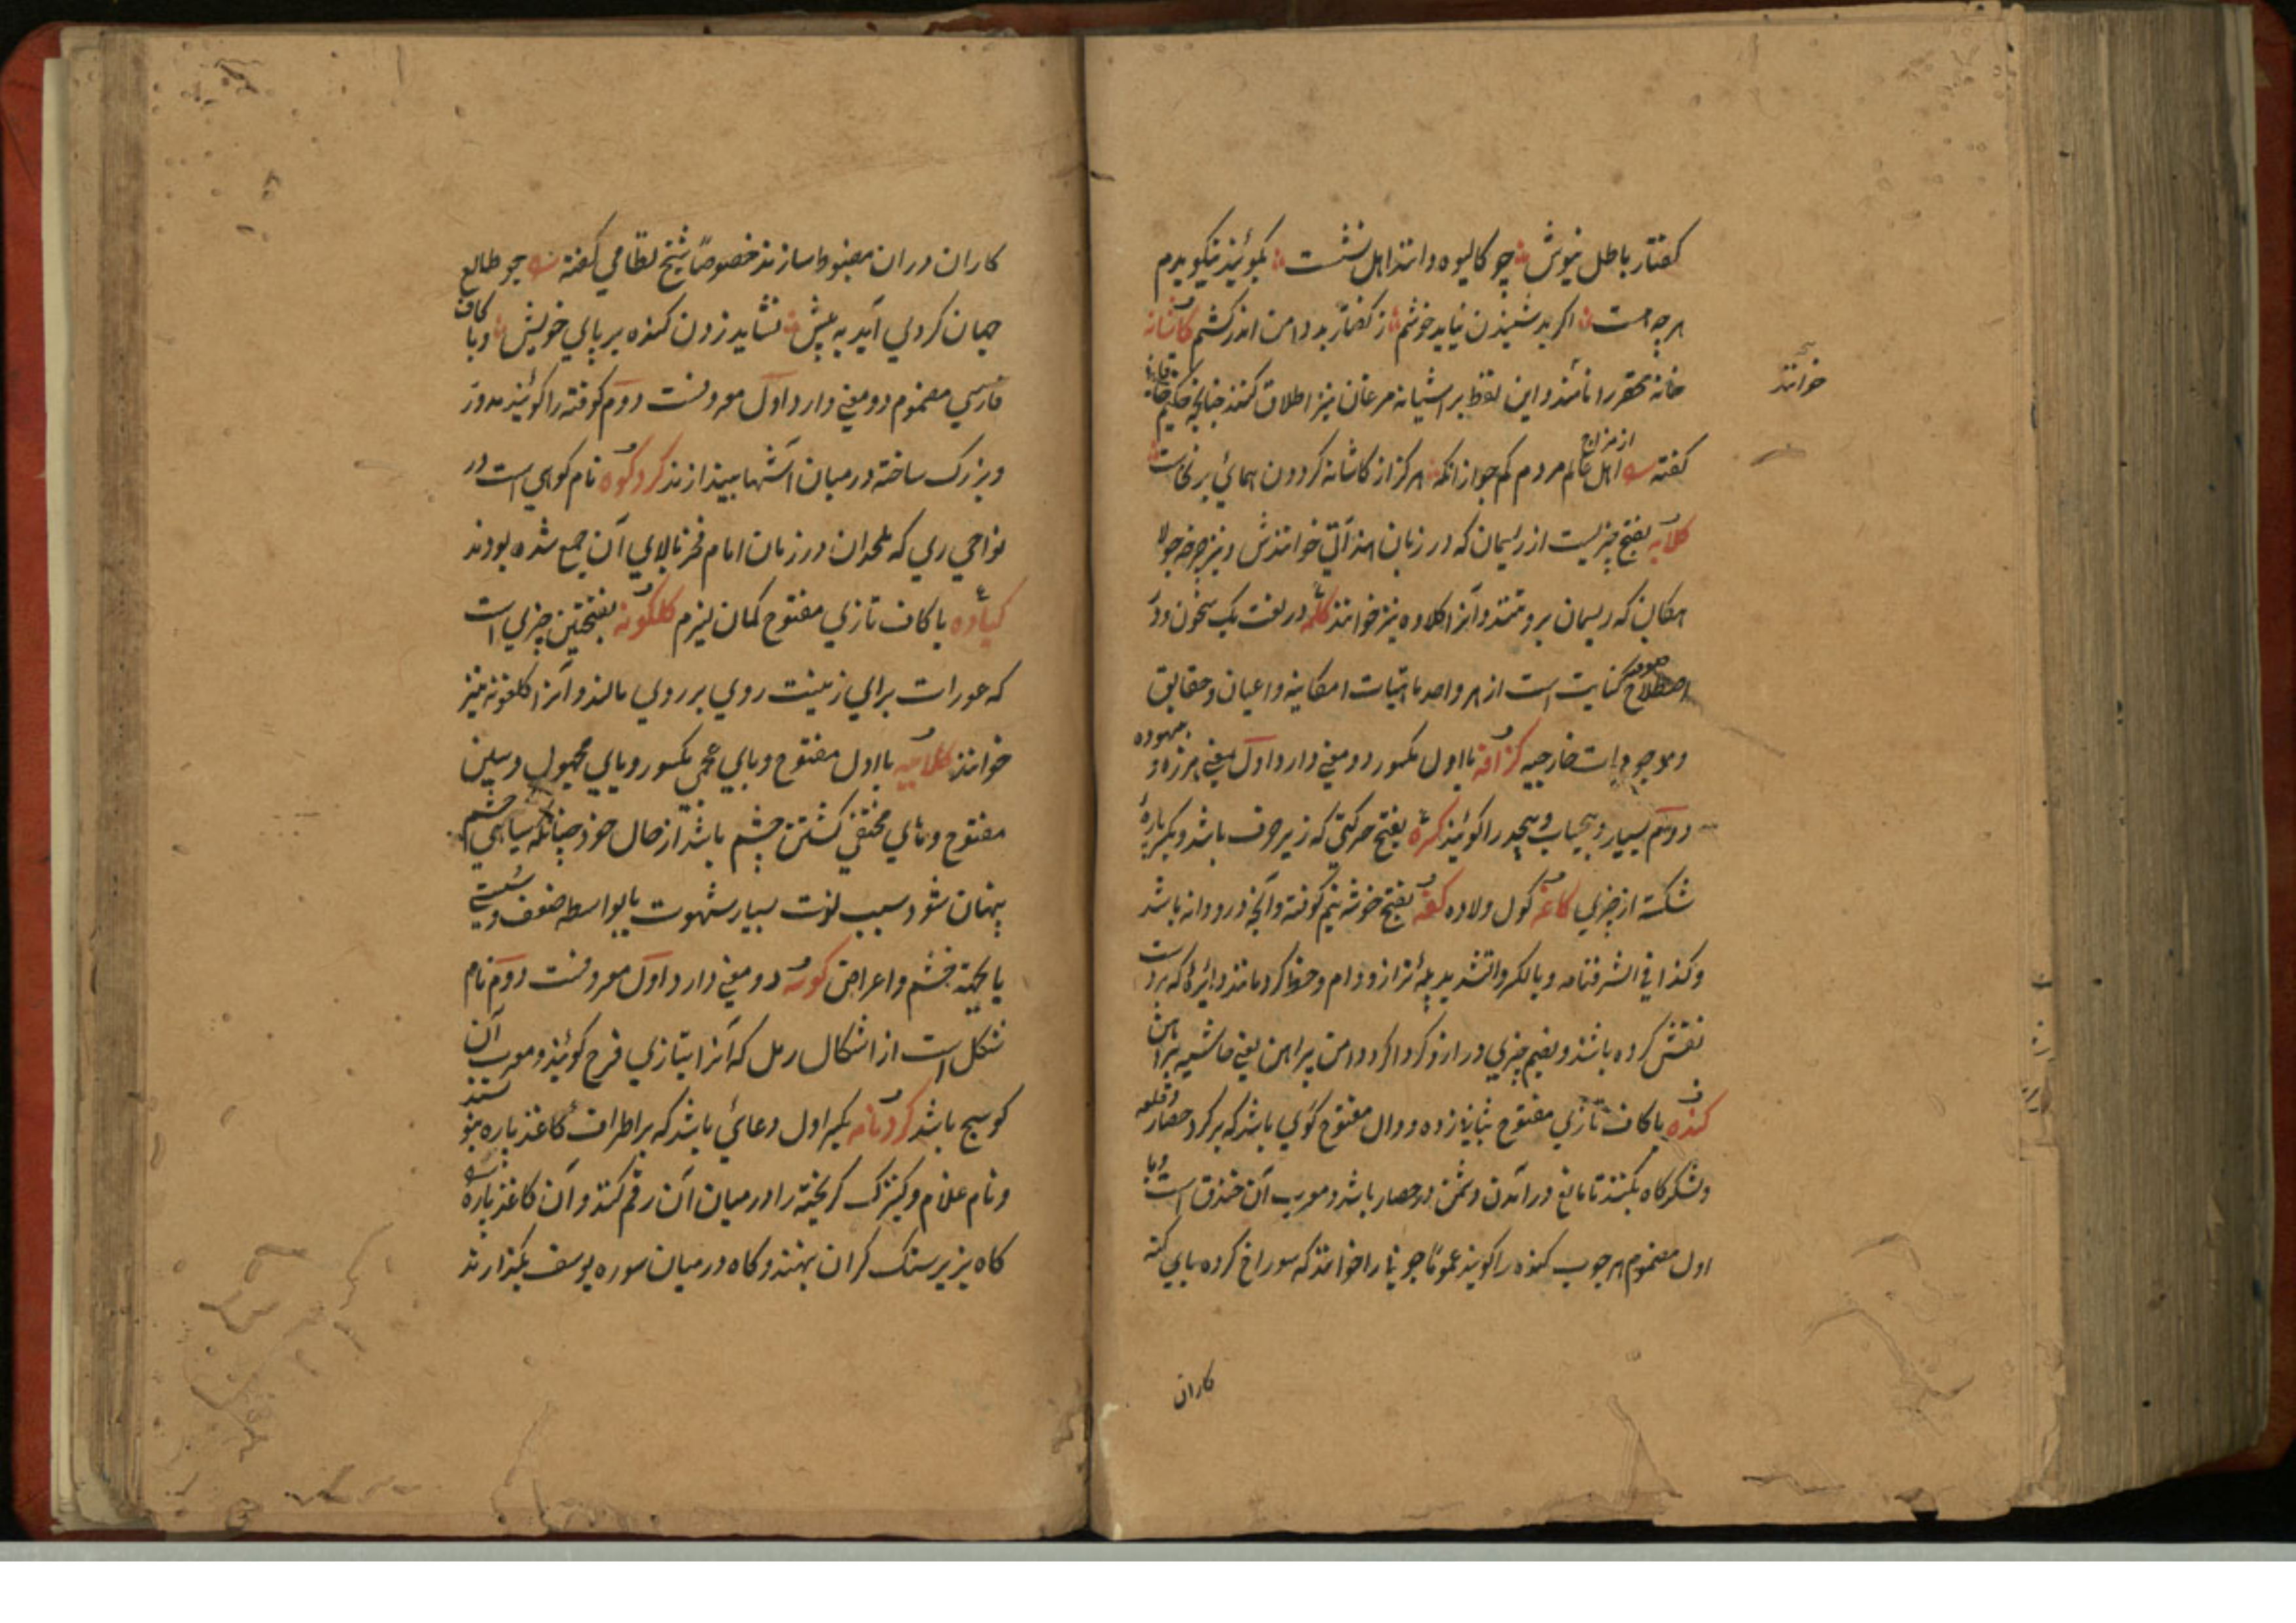 کفتار باطل نیوش چو کالیوه دانند اهل نشست بکویند نیکو بدم
هر چه هست اکر بد شنیدن نیاید خوشم ز کفتار بد دامن اندر کشم کاشانه
خانه محقر را نامند و این لفظ بر آشیانه مرغان نیز اطلاق کنند چنانچه حکیم خاقانی
خوانند
کفته اهل از مزاج عالم مردم کم جو از انکه هرکز از کاشانه کردون همائی برنخاست
کلابه بفتح چیزیست از ریسمان که در زبان هند آنتی خوانندش و نیز چرخه جولا
هکان که ریسمان برو تنند و آنرا کلاوه نیز خوانند کلمه در لغت یک سخن و در
اصطلاح صوفیه کنایت است از هر واحد ماهیات امکانیه و اعیان و حقایق
و موجودات خارجیه کزافه با اول مکسور دو معنی دارد اول بمعنی هرزه و بیهوده
دوم بسیار و بیحساب و بیحد را کویند کسره بفتح حرکتی که زیر حرف باشد و بکسر پاره
شکسته از چیزی کاغه کول و لاده کفه بفتح خوشه نیم کوفته و آنچه درو دانه باشد
و کذا فی الشرفنامه و بالکسر والتشدید پله ترازو و دام و حفظ کرد مانند دایره که بر دست
نقش کرده باشند و بضم چیزی دراز و کرداکرد دامن پیراهن یعنی حاشیه پیراهن
کنده با کاف تازی مفتوح بثانی زده و دال مفتوح کوی باشد که بر کرد حصار و قلعه
و لشکرکاه بکنند تا مانع در آمدن دشمن در حصار باشد و معرب آن خندق است و با
اول مضموم هر چوب کنده را کویند عموما چوبی را خوانند که سوراخ کرده پای کنه
کاران
کاران در ان مضبوط سازند خصوصا شیخ نظامی کفته چو طالع
جهان کردی آید به پیش نشاید زدن کنده بر پای خویش و با کاف
فارسی مضموم دو معنی دارد اول معروفست دوم کوفته را کویند مدور
و بزرک ساخته در میان آشها بیندازند کرد کوه نام کوهی است در
نواحی ری که ملحدان در زمان امام فخر بالای آن جمع شده بودند
کباده با کاف تازی مفتوح کمان لیزم کلکونه بفتحتین چیزی است
که عورات برای زینت روی بر روی مالند و آنرا کلغونه نیز
خوانند کلاپیسه با اول مفتوح و بای عجمی مکسور و یای مجهول و سین
مفتوح و های مختفی کشتن چشم باشد از حال خود چنانکه سیاهی چشم
پنهان شود بسبب لذت بسیار شهوت یا بواسطه ضعف و سستی
یا بجهة خشم و اعراض کوسه دو معنی دارد اول معروفست دوم نام
شکل است از اشکال رمل که آنرا بتازی فرح کویند و معرب آن
کوسج باشد کردنامه بکسر اول دعائی باشد که بر اطراف کاغذ پاره بنویسند
و نام غلام و کنیزک کریخته را در میان آن رقم کنند و آن کاغذ پاره
کاه بزیر سنک کران بنهند و کاه در میان سوره یوسف بکذارند